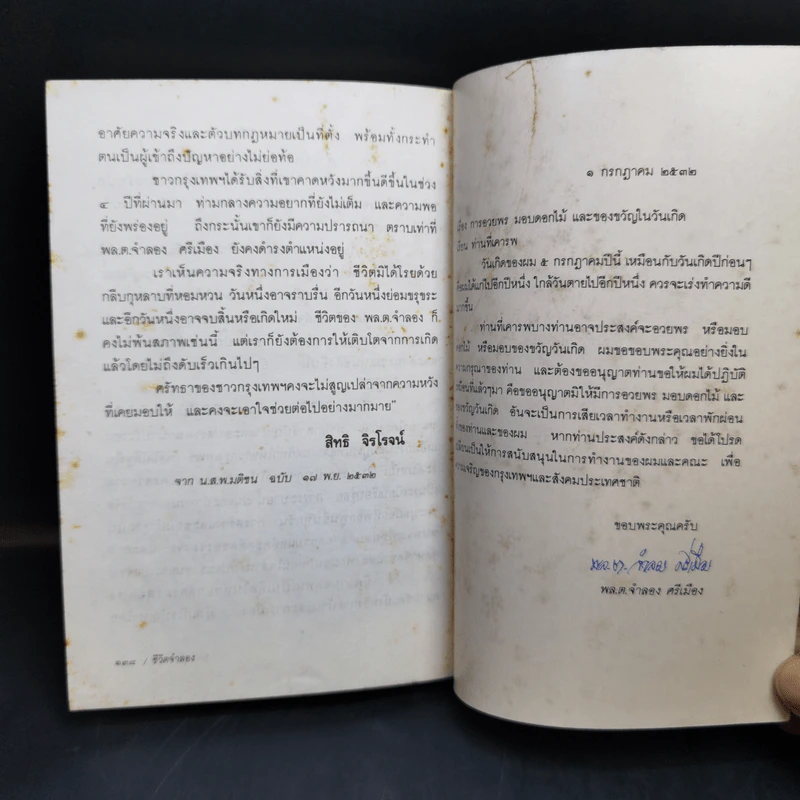 อาศัยความจริงและตัวบทกฎหมายเป็นที่ตั้ง พร้อมทั้งกระทำ
ตนเป็นผู้เข้าถึงปัญหาอย่างไม่ย่อท้อ
ชาวกรุงเทพฯได้รับสิ่งที่เขาคาดหวังมากขึ้นดีขึ้นในช่วง
๔ ปีที่ผ่านมา ท่ามกลางความอยากที่ยังไม่เต็ม และความพอ
ที่ยังพร่องอยู่ ถึงกระนั้นเขาก็ยังมีความปรารถนา ตราบเท่าที่
พล.ต.จำลอง ศรีเมือง ยังคงดำรงตำแหน่งอยู่
เราเห็นความจริงทางการเมืองว่า ชีวิตมิได้โรยด้วย
กลีบกุหลาบที่หอมหวน วันหนึ่งอาจราบรื่น อีกวันหนึ่งย่อมขรุขระ
และอีกวันหนึ่งอาจจบสิ้นหรือเกิดใหม่ ชีวิตของ พล.ต.จำลอง ก็
คงไม่พ้นสภาพเช่นนี้ แต่เราก็ยังต้องการให้เติบโตจากการเกิด
แล้วโดยไม่ถึงดับเร็วเกินไปๆ
ศรัทธาของชาวกรุงเทพฯคงจะไม่สูญเปล่าจากความหวัง
ที่เคยมอบให้ และคงจะเอาใจช่วยต่อไปอย่างมากมาย"
สิทธิ จิรโรจน์
จาก น.ส.พ.มติชน ฉบับ ๑๗ พ.ย. ๒๕๓๒
๑๓๘ / ชีวิตจำลอง
๑ กรกฎาคม ๒๕๓๒
เรื่อง การอวยพร มอบดอกไม้ และของขวัญในวันเกิด
เรียน ท่านที่เคารพ
วันเกิดของผม ๕ กรกฎาคมปีนี้ เหมือนกับวันเกิดปีก่อนๆ
คือผมได้แก่ไปอีกปีหนึ่ง ใกล้วันตายไปอีกปีหนึ่ง ควรจะเร่งทำความดี
มากขึ้น
ท่านที่เคารพบางท่านอาจประสงค์จะอวยพร หรือมอบ
ดอกไม้ หรือมอบของขวัญวันเกิด ผมขอขอบพระคุณอย่างยิ่งใน
ความกรุณาของท่าน และต้องขออนุญาตท่านขอให้ผมได้ปฏิบัติ
เหมือนที่แล้วๆมา คือขออนุญาตมิให้มีการอวยพร มอบดอกไม้ และ
ของขวัญวันเกิด อันจะเป็นการเสียเวลาทำงานหรือเวลาพักผ่อน
ทั้งของท่านและของผม หากท่านประสงค์ดังกล่าว ขอได้โปรด
เปลี่ยนเป็นให้การสนับสนุนในการทำงานของผมและคณะ เพื่อ
ความเจริญของกรุงเทพฯและสังคมประเทศชาติ
ขอบพระคุณครับ
พล.ต. จำลอง ศรีเมือง
พล.ต.จำลอง ศรีเมือง